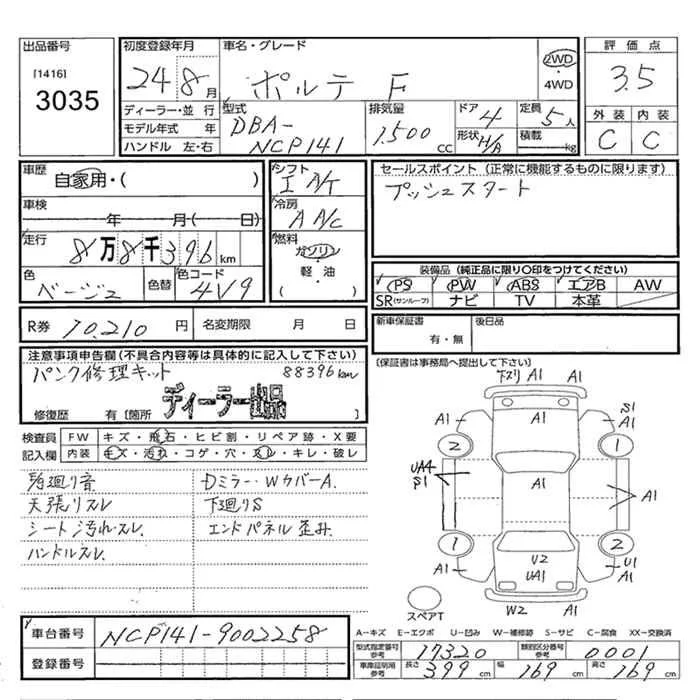 出品番号
[1416]
3035
初度登録年月
24 8月
車名・グレード
ポルテ F
2WD
・
4WD
評価点
3.5
外装 内装
C C
ディーラー・並 行
モデル年式 年
ハンドル 左・右
型式
DBA-
NCP141
排気量
1,500 cc
ドア 4
形状 H/B
定員 5人
積載 kg
車歴
自家用・( )
車検
年 月( 日)
走行
8万8千396 km
色
ベージュ
色替
色コード
4V9
シフト
I A/T
冷房
A A/C
燃料
ガソリン
・
軽・油
( )
セールスポイント (正常に機能するものに限ります)
プッシュスタート
装備品 (純正品に限り○印をつけてください)
PS PW ABS エアB AW
SR(サンルーフ) ナビ TV 本革
R券 10,210 円
名変期限 月 日
新車保証書
有・無
後日品
注意事項申告欄(不具合内容等は具体的に記入して下さい)
パンク修理キット 88396km
ディーラー出品
修復歴 有 [箇所 ]
[保証書は事務局へ提出して下さい]
検査員
記入欄
FW キズ・飛石・ヒビ割・リペア跡・X要
内装 キズ・汚れ・コゲ・穴・スレ・キレ・破レ
足廻り音
天張りスレ
シート汚れスレ
ハンドルスレ
Dミラー・WカバーA.
下廻りS
エンドパネル歪み
下スリ A1 A1
A1 A1 S1
A1
2 1
UA4
S1
A1
A1
1 2
U2
UA1
A1 U1
A1
W2 A1
スペアT
車台番号 NCP141-9002258
登録番号
A-キズ E-エクボ U-凹み W-補修跡 S-サビ C-腐食 XX-交換済
型式指定番号
参考
17320
類別区分番号
参考
0001
車庫証明用
参考
長さ 399 cm 幅 169 cm 高さ 169 cm